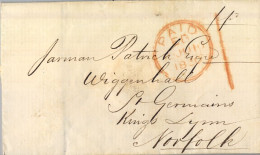 PAID
Jarman Patrick
Wiggenhall
St Germains
Kings Lynn
Norfolk